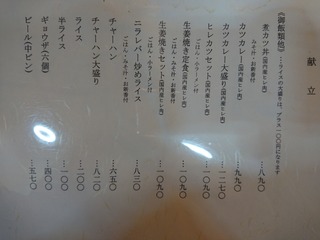 献立
《御飯類他》 ・ライスの大盛りは、プラス一〇〇円になります
煮カツ丼(国内産ヒレ肉) …八九〇
みそ汁・お新香付
カツカレー(国内産ヒレ肉) …九九〇
カツカレー大盛り(国内産ヒレ肉) …一二七〇
ヒレカツセット(国内産ヒレ肉) …一〇九〇
ごはん・みそ汁・お新香付
生姜焼き定食(国内産ヒレ肉) …一〇九〇
ごはん・みそ汁・お新香付
生姜焼きセット(国内産ヒレ肉) …一〇九〇
ごはん・小ラーメン付
ニラレバー炒めライス …八三〇
ごはん・みそ汁・お新香付
チャーハン …六五〇
チャーハン大盛り …八二〇
ライス …二〇〇
半ライス …一〇〇
ギョウザ(六個) …四〇〇
ビール(中ビン) …五七〇